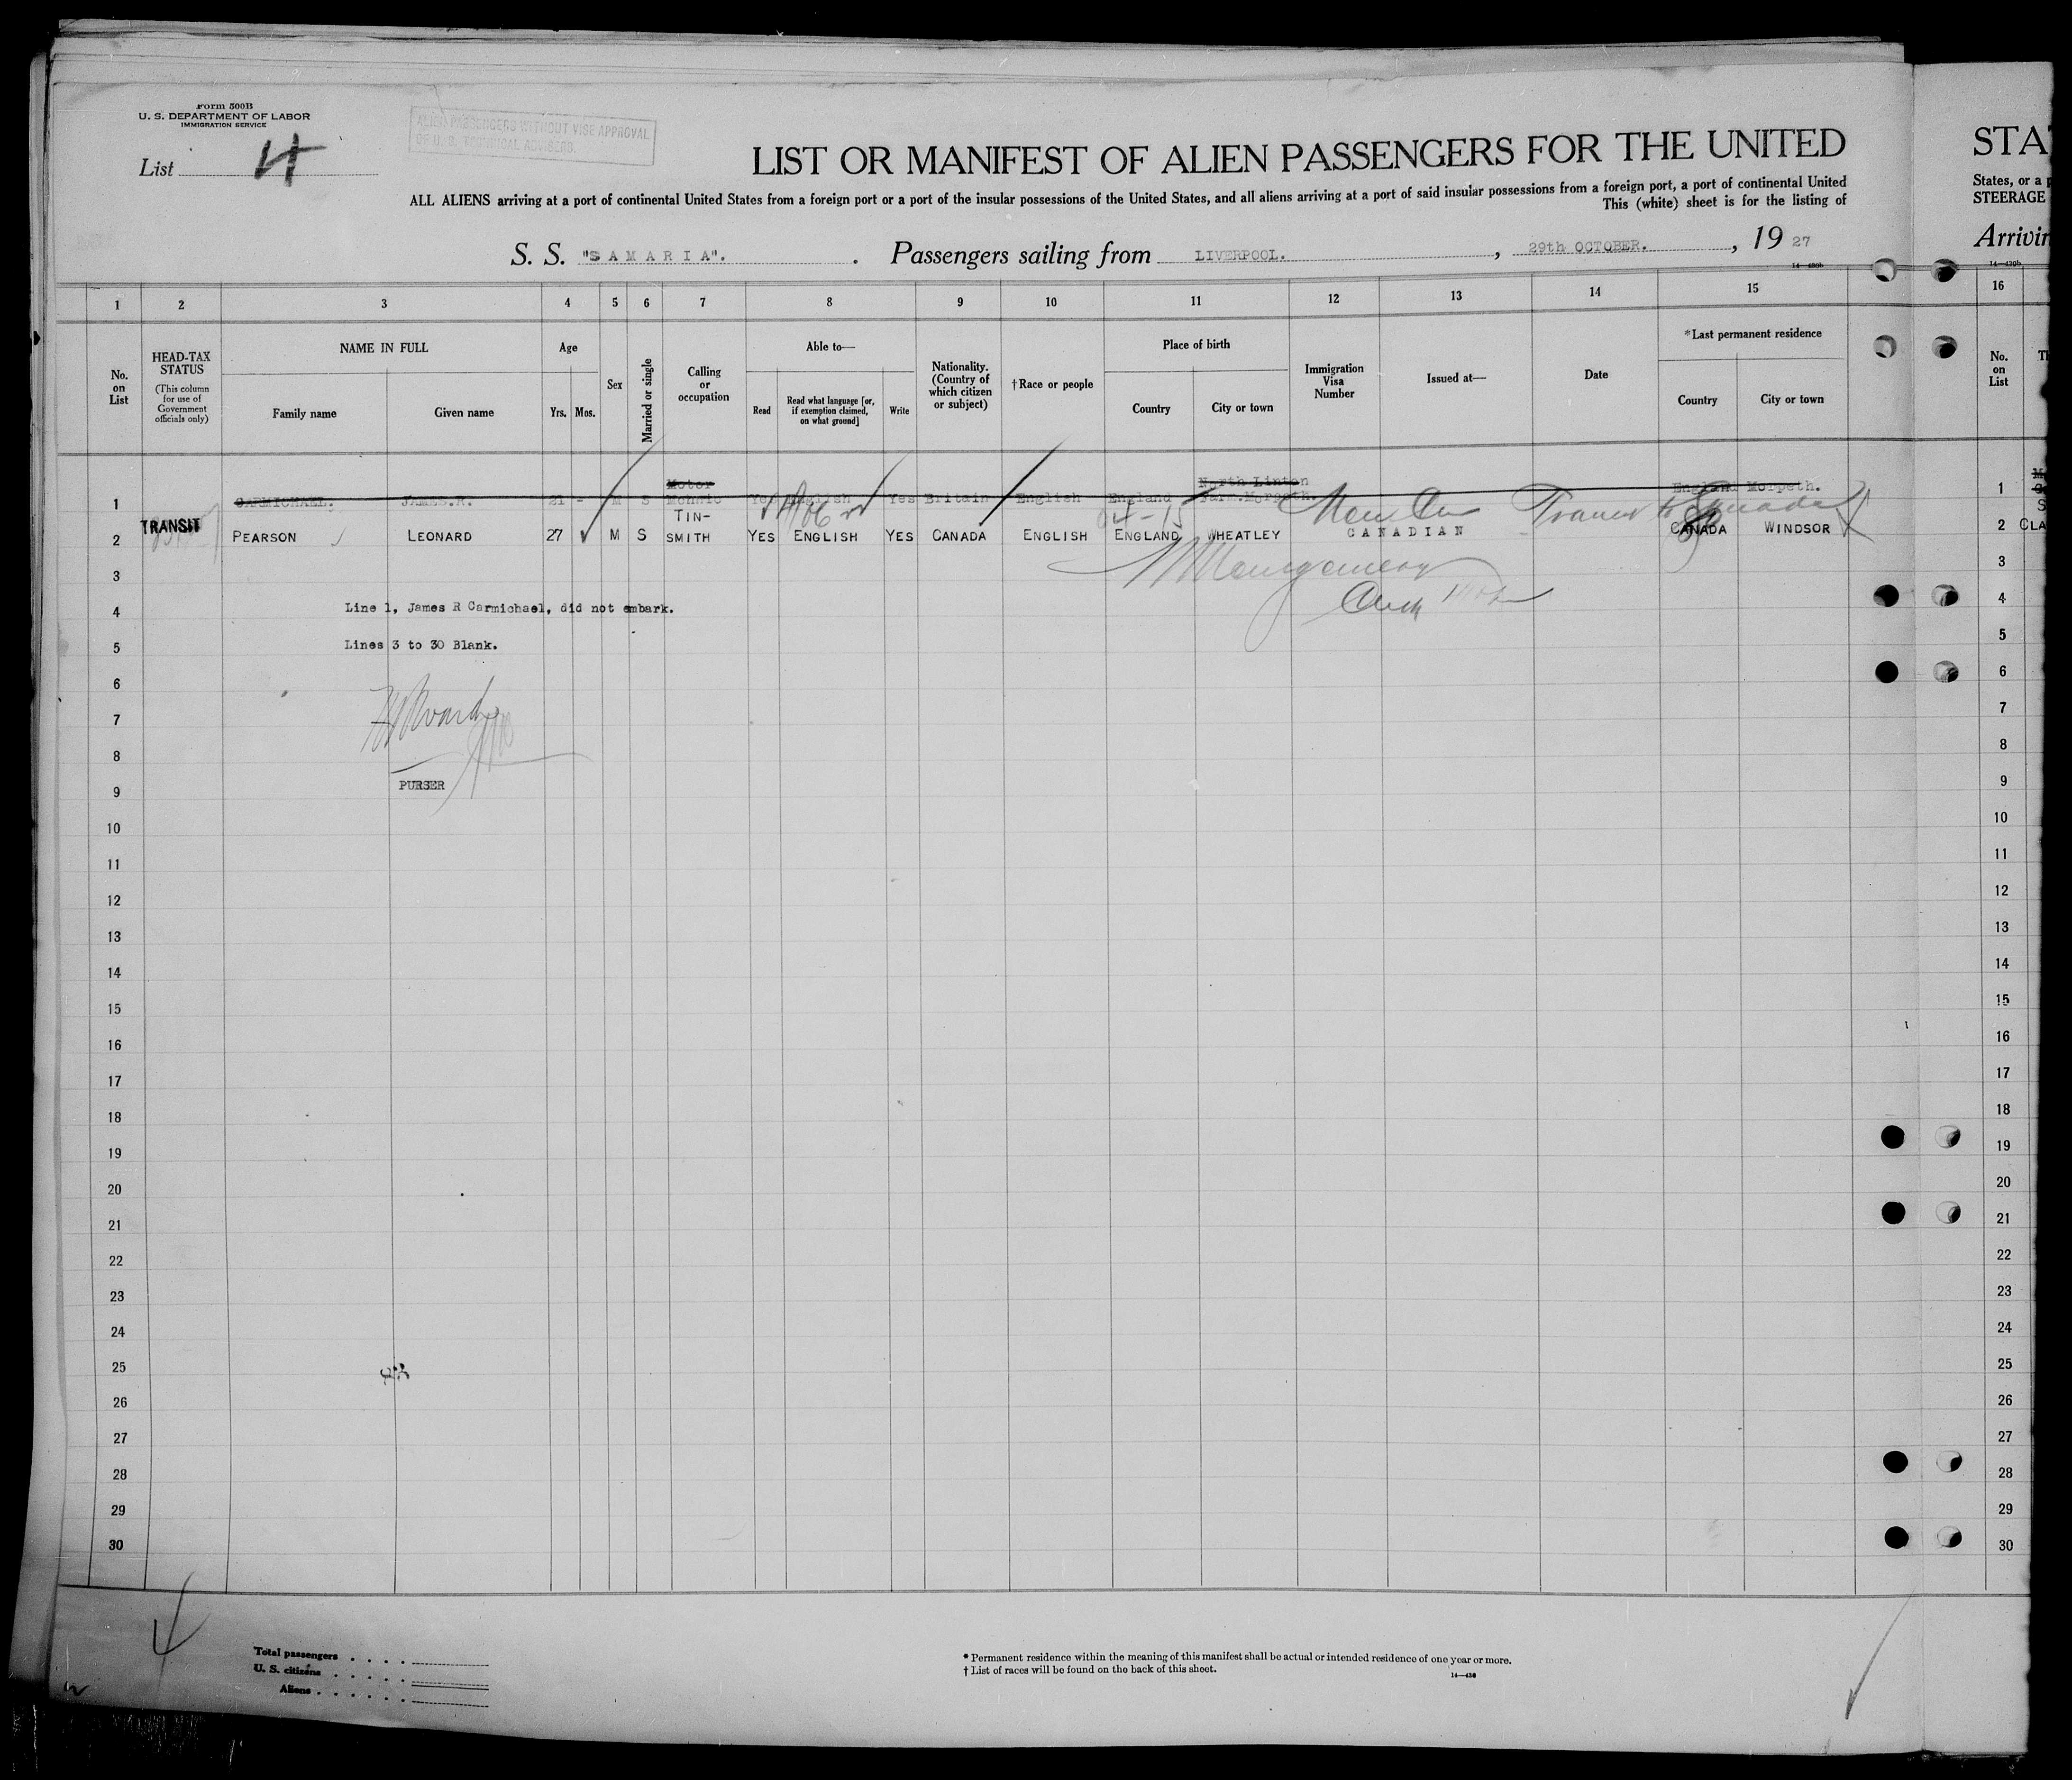 Form 500B
U. S. DEPARTMENT OF LABOR
IMMIGRATION SERVICE
List 4
ALIEN PASSENGERS WITHOUT VISE APPROVAL
OF U. S. TECHNICAL ADVISERS.
LIST OR MANIFEST OF ALIEN PASSENGERS FOR THE UNITED
ALL ALIENS arriving at a port of continental United States from a foreign port or a port of the insular possessions of the United States, and all aliens arriving at a port of said insular possessions from a foreign port, a port of continental United
This (white) sheet is for the listing of
S. S. "SAMARIA". Passengers sailing from LIVERPOOL. , 29th OCTOBER. , 19 27
14—430b
STA
States, or a p
STEERAGE
Arrivin
14—430b
1 2 3 4 5 6 7 8 9 10 11 12 13 14 15 16
No. on List
HEAD-TAX STATUS
(This column for use of Government officials only)
NAME IN FULL
Family name Given name
Age
Yrs. Mos.
Sex
Married or single
Calling or occupation
Able to—
Read
Read what language [or, if exemption claimed, on what ground]
Write
Nationality. (Country of which citizen or subject)
†Race or people
Place of birth
Country City or town
Immigration Visa Number
Issued at—
Date
*Last permanent residence
Country City or town
No. on List
1 CARMICHAEL. JAMES.R. 21 - M S Motor Mchnic Yes English Yes Britain English England North Linton Farm.Morpeth. England Morpeth. 1
TRANSIT
2 PEARSON LEONARD 27 M S TIN-SMITH YES ENGLISH YES CANADA ENGLISH ENGLAND WHEATLEY CANADIAN CANADA WINDSOR 2 CLA
Montgomery
3 3
4 Line 1, James R Carmichael, did not embark. 4
5 Lines 3 to 30 Blank. 5
6 6
7 7
8 8
9 PURSER 9
10 10
11 11
12 12
13 13
14 14
15 15
16 16
17 17
18 18
19 19
20 20
21 21
22 22
23 23
24 24
25 25
26 26
27 27
28 28
29 29
30 30
Total passengers . . . .
U. S. citizens . . . . .
Aliens . . . . . .
* Permanent residence within the meaning of this manifest shall be actual or intended residence of one year or more.
† List of races will be found on the back of this sheet.
14—430